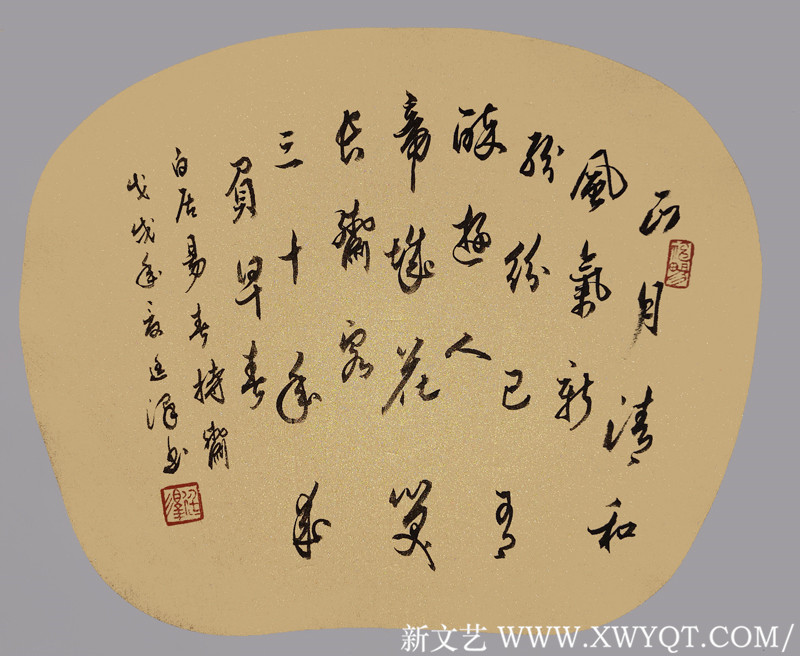 正月清和
風氣新
紛紛已有
醉遊人
帝城花笑
長齋客
三十年来
負早春
白居易春持齋
戊戌年夏廷澤书
新文艺 WWW.XWYQT.COM/